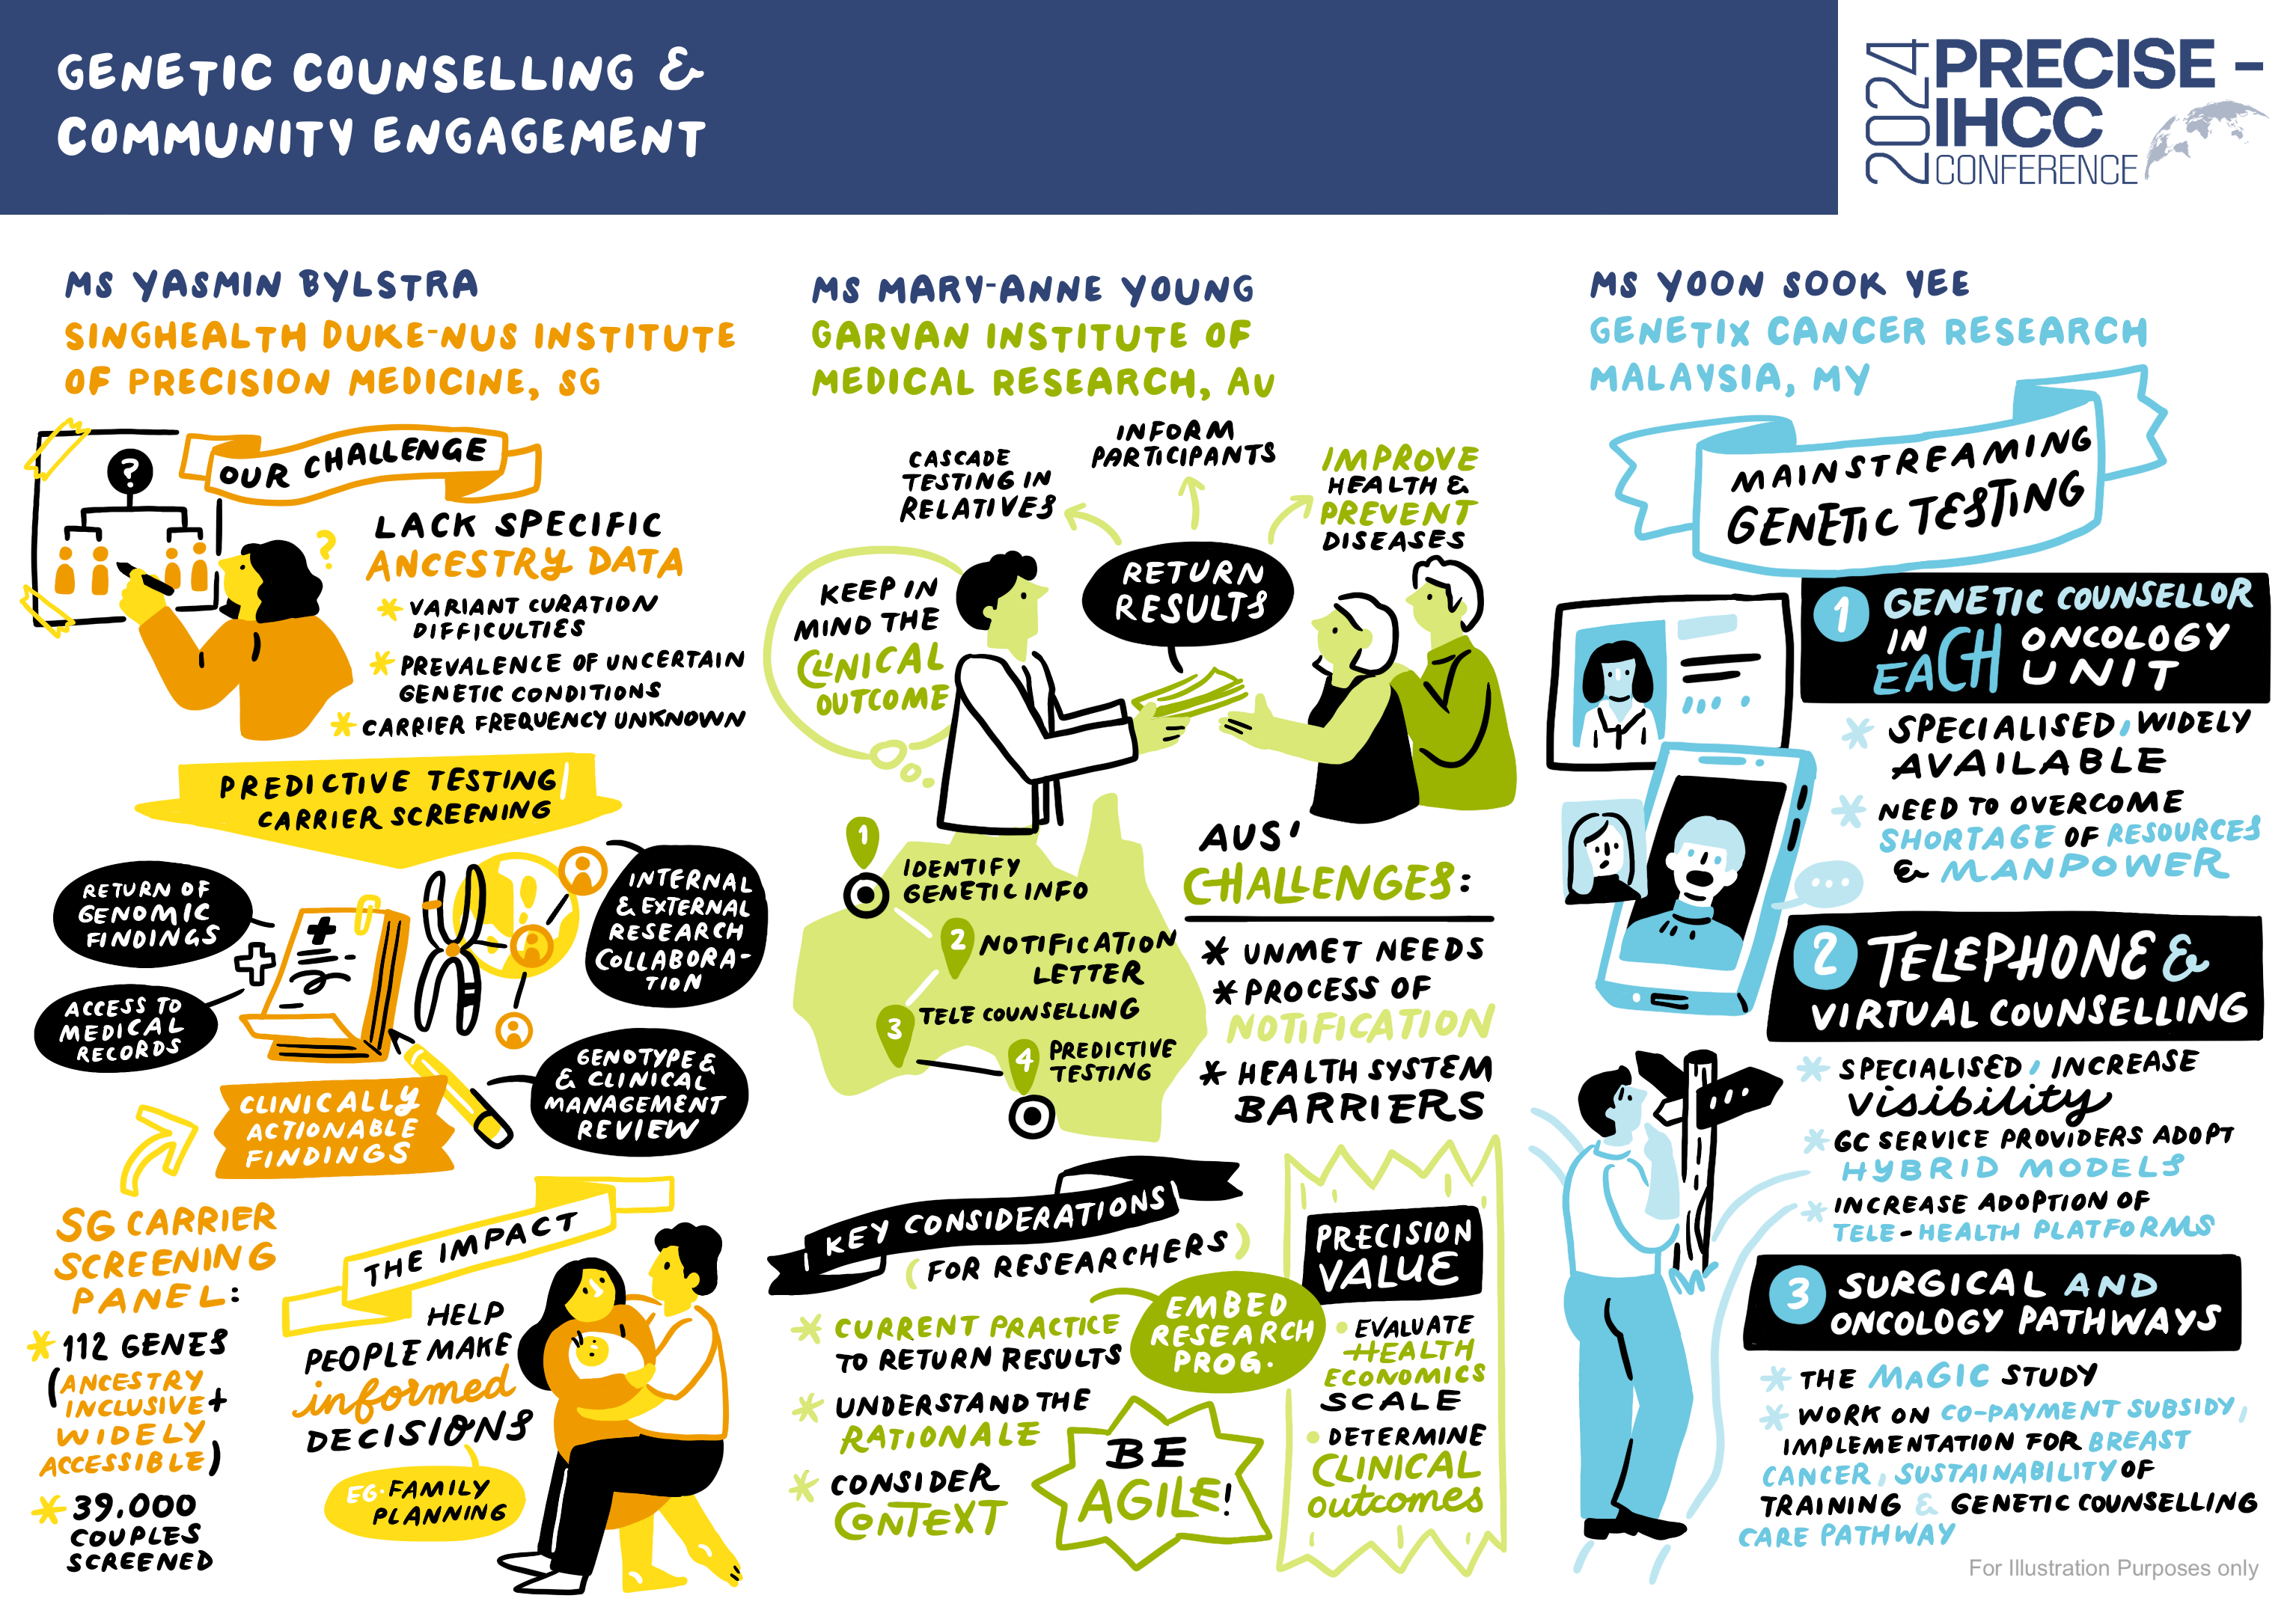 GENETIC COUNSELLING &
COMMUNITY ENGAGEMENT
2024
PRECISE –
IHCC
CONFERENCE
MS YASMIN BYLSTRA
SINGHEALTH DUKE-NUS INSTITUTE
OF PRECISION MEDICINE, SG
OUR CHALLENGE
?
?
LACK SPECIFIC
ANCESTRY DATA
* VARIANT CURATION
DIFFICULTIES
* PREVALENCE OF UNCERTAIN
GENETIC CONDITIONS
* CARRIER FREQUENCY UNKNOWN
PREDICTIVE TESTING/
CARRIER SCREENING
RETURN OF
GENOMIC
FINDINGS
ACCESS TO
MEDICAL
RECORDS
INTERNAL
& EXTERNAL
RESEARCH
COLLABORA-
TION
GENOTYPE &
& CLINICAL
MANAGEMENT
REVIEW
CLINICALLY
ACTIONABLE
FINDINGS
SG CARRIER
SCREENING
PANEL:
* 112 GENES
(ANCESTRY
INCLUSIVE +
WIDELY
ACCESSIBLE)
* 39,000
COUPLES
SCREENED
THE IMPACT
HELP
PEOPLE MAKE
informed
DECISIONS
EG. FAMILY
PLANNING
MS MARY-ANNE YOUNG
GARVAN INSTITUTE OF
MEDICAL RESEARCH, AU
CASCADE
TESTING IN
RELATIVES
INFORM
PARTICIPANTS
IMPROVE
HEALTH &
PREVENT
DISEASES
RETURN
RESULTS
KEEP IN
MIND THE
CLINICAL
OUTCOME
1
IDENTIFY
GENETIC INFO
2
NOTIFICATION
LETTER
3
TELE COUNSELLING
4
PREDICTIVE
TESTING
AUS'
CHALLENGES:
* UNMET NEEDS
* PROCESS OF
NOTIFICATION
* HEALTH SYSTEM
BARRIERS
KEY CONSIDERATIONS
(FOR RESEARCHERS)
* CURRENT PRACTICE
TO RETURN RESULTS
EMBED
RESEARCH
PROG.
* UNDERSTAND THE
RATIONALE
* CONSIDER
CONTEXT
BE
AGILE!
PRECISION
VALUE
• EVALUATE
HEALTH
ECONOMICS
SCALE
• DETERMINE
CLINICAL
outcomes
MS YOON SOOK YEE
GENETIX CANCER RESEARCH
MALAYSIA, MY
MAINSTREAMING
GENETIC TESTING
1 GENETIC COUNSELLOR
IN EACH ONCOLOGY
UNIT
* SPECIALISED, WIDELY
AVAILABLE
* NEED TO OVERCOME
SHORTAGE OF RESOURCES
& MANPOWER
2 TELEPHONE &
VIRTUAL COUNSELLING
* SPECIALISED, INCREASE
visibility
* GC SERVICE PROVIDERS ADOPT
HYBRID MODELS
* INCREASE ADOPTION OF
TELE-HEALTH PLATFORMS
3 SURGICAL AND
ONCOLOGY PATHWAYS
* THE MaGiC STUDY
* WORK ON CO-PAYMENT SUBSIDY,
IMPLEMENTATION FOR BREAST
CANCER, SUSTAINABILITY OF
TRAINING & GENETIC COUNSELLING
CARE PATHWAY
For Illustration Purposes only